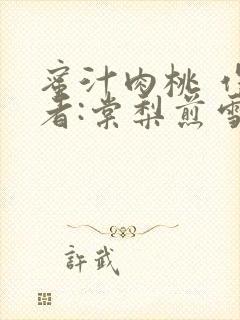 蜜汁肉桃 作
者:棠梨煎雪
許武